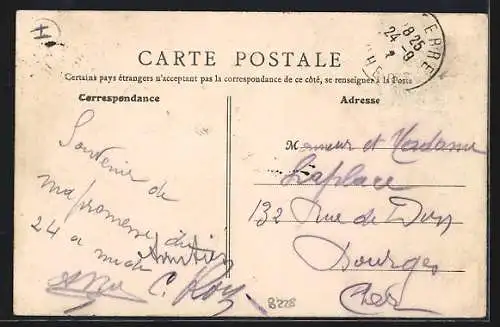 H
ERRE
8 25
24 - 9
CARTE POSTALE
Certains pays étrangers n'acceptant pas la correspondance de ce côté, se renseigner à la Poste
Correspondance
Adresse
Souvenir de
ma promenade du
24 a midi
C. Roy
Monsieur et Madame
Laplace
132 Rue de Dun
Bourges
Cher
8228